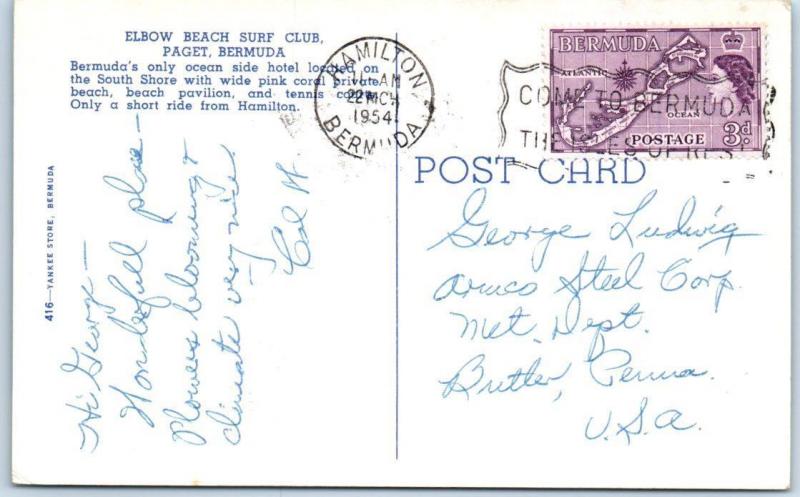 ELBOW BEACH SURF CLUB,
PAGET, BERMUDA
Bermuda's only ocean side hotel located on
the South Shore with wide pink coral private
beach, beach pavilion, and tennis courts.
Only a short ride from Hamilton.
HAMILTON
11-AM
22 MCH
1954
BERMUDA
BERMUDA
ATLANTIC
OCEAN
POSTAGE 3d
COME TO BERMUDA
THE ISLES OF REST
POST CARD
416—YANKEE STORE, BERMUDA
Hi George—
Wonderfull place—
Flowers blooming &
climate very nice.
George Ludwig
Armco Steel Corp.
Met. Dept.
Butler, Penna.
U.S.A.